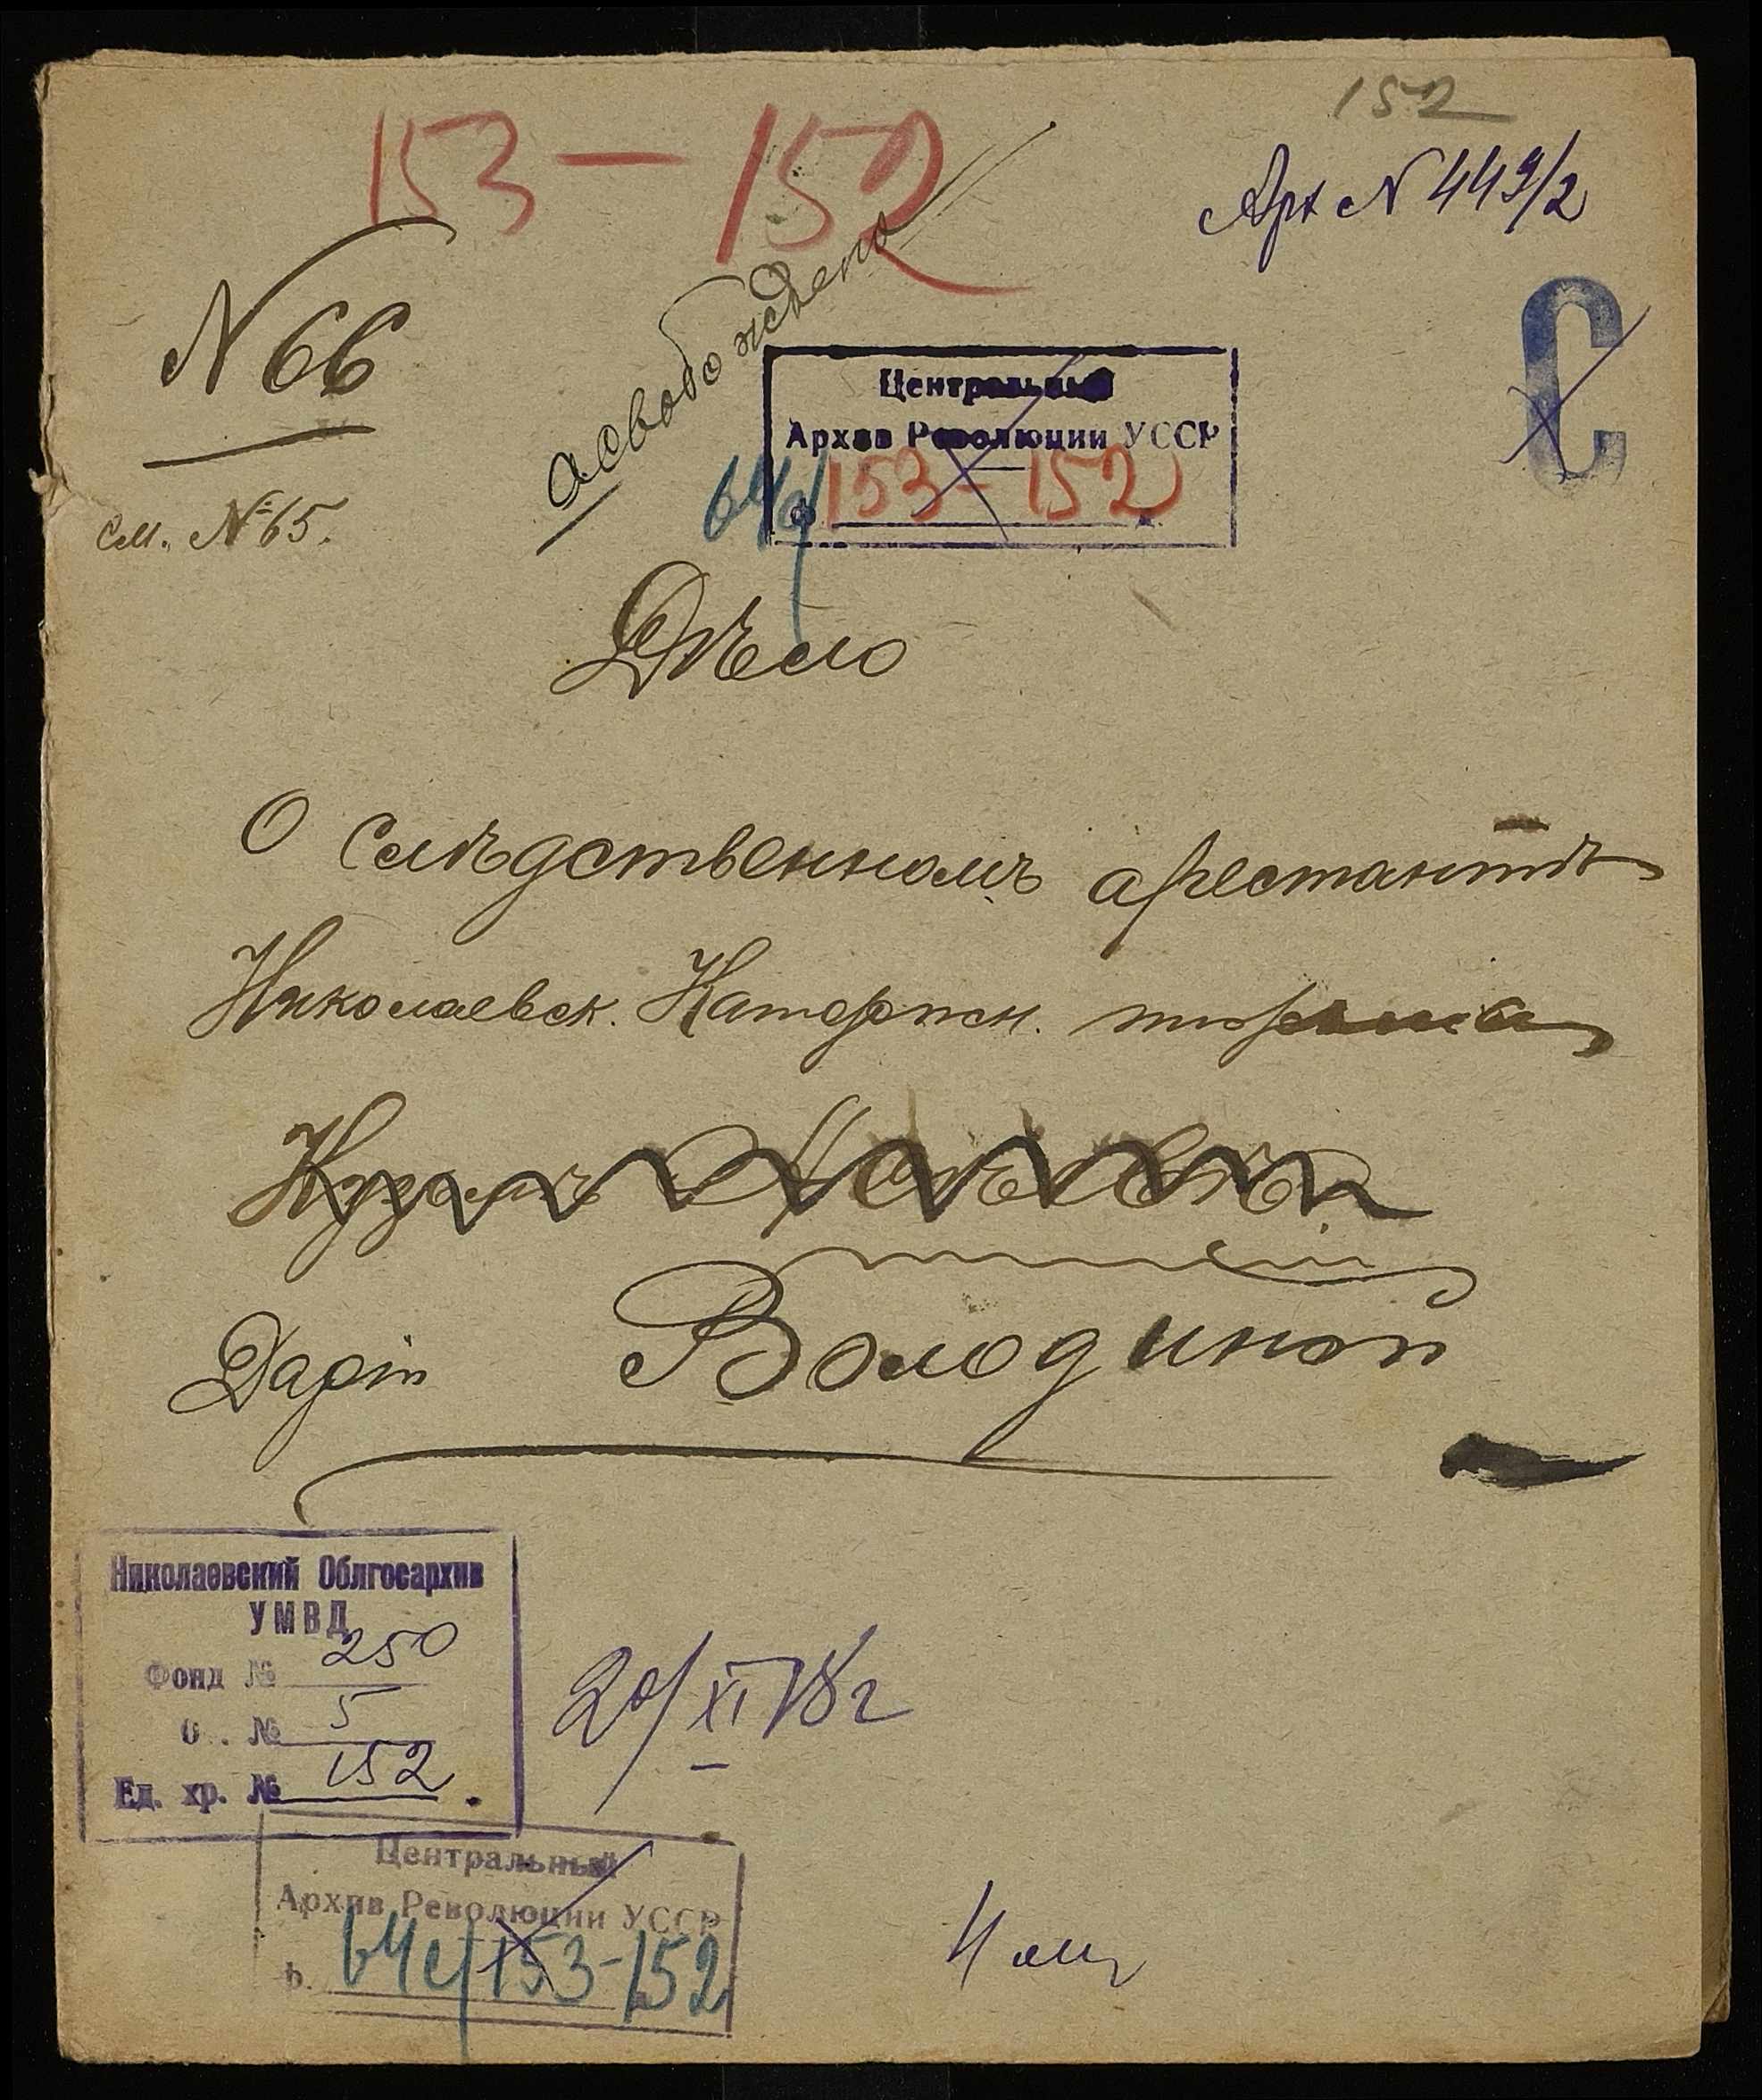 152
153 — 152
Арх N 449/2
N 66
освобождено
С
См. № 65.
Центральный
Архив Революции УССР
153 - 152
Дѣло
О слѣдственномъ арестантѣ
Николаевск. Каторжн. тюрьма
Даріи Володиной
Николаевский Облгосархив
УМВД
Фонд № 250
О . № 5
Ед. хр. № 152
20/XI 18 г
Центральный
Архив Революции УССР
153-152
4